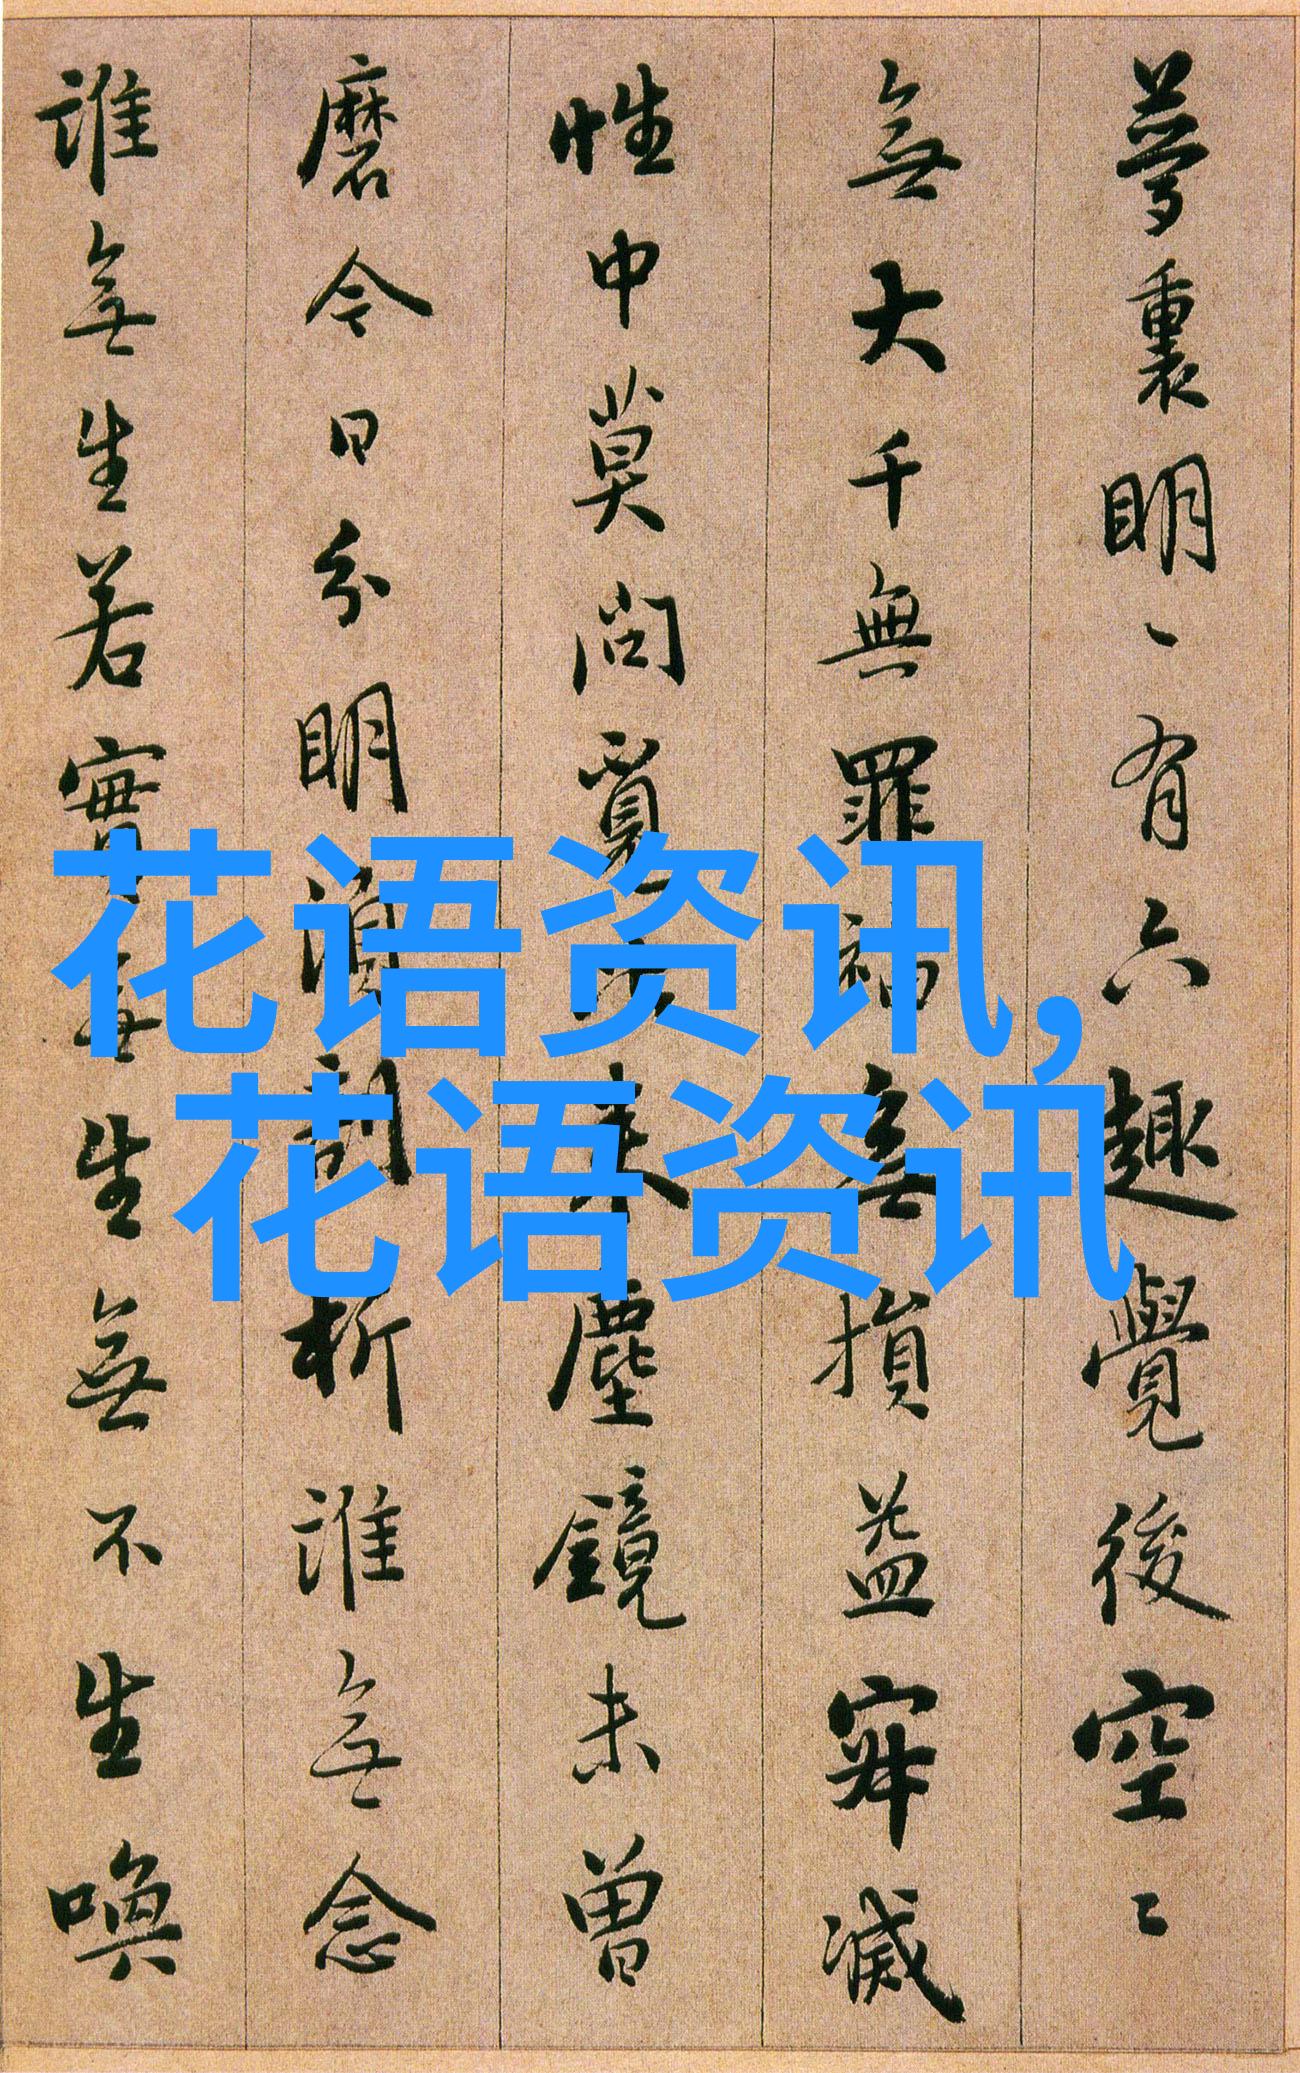 夢裏明〻有六趣覺後空〻
無大千無罪福無損益寂滅
性中莫問覓來塵鏡未曾
磨今日分明須剖析誰無念
誰無生若實無生無不生喚
花语资讯,
花语资讯